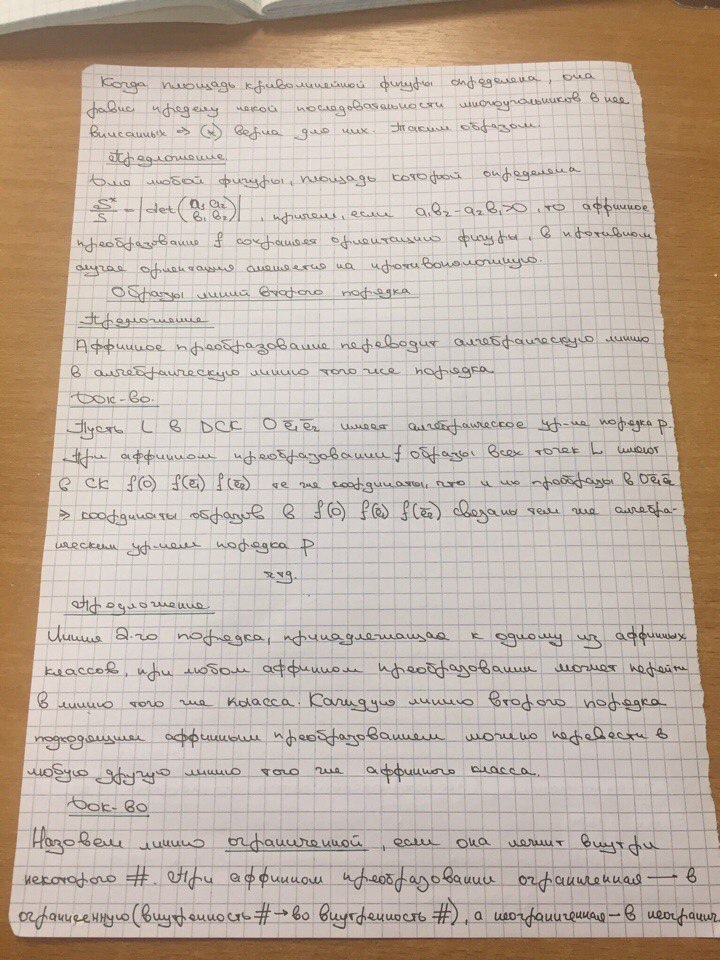 Когда площадь криволинейной фигуры определена, она
равна пределу некой последовательности многоугольников в нее
вписанных ⇒ (*) верна для них. Таким образом.
Предложение.
Для любой фигуры, площадь которой определена
S*/S = |det(a₁ a₂ b₁ b₂)|, причем, если a₁b₂-a₂b₁>0, то аффинное
преобразование f сохраняет ориентацию фигуры, в противном
случае ориентация меняется на противоположную.
Образы линий второго порядка
Предложение
Аффинное преобразование переводит алгебраическую линию
в алгебраическую линию того же порядка
Док-во.
Пусть L в ДСК O e̅₁ e̅₂ имеет алгебраическое ур-ие порядка p.
При аффинном преобразовании f образы всех точек L имеют
в СК f(O) f(e̅₁) f(e̅₂) те же координаты, что и их прообразы в O e̅₁ e̅₂
⇒ координаты образов в f(O) f(e̅₁) f(e̅₂) связано тем же алгебра-
ическим ур-ием порядка p
чтд.
Предложение.
Линия 2-го порядка, принадлежащая к одному из аффинных
классов, при любом аффинном преобразовании может перейти
в линию того же класса. Каждую линию второго порядка
подходящим аффинным преобразованием можно перевести в
любую другую линию того же аффинного класса.
Док-во
Назовем линию ограниченной, если она лежит внутри
некоторого #. При аффинном преобразовании ограниченная → в
ограниченную (внутренность # → во внутренность #), а неограниченная – в неогранич.